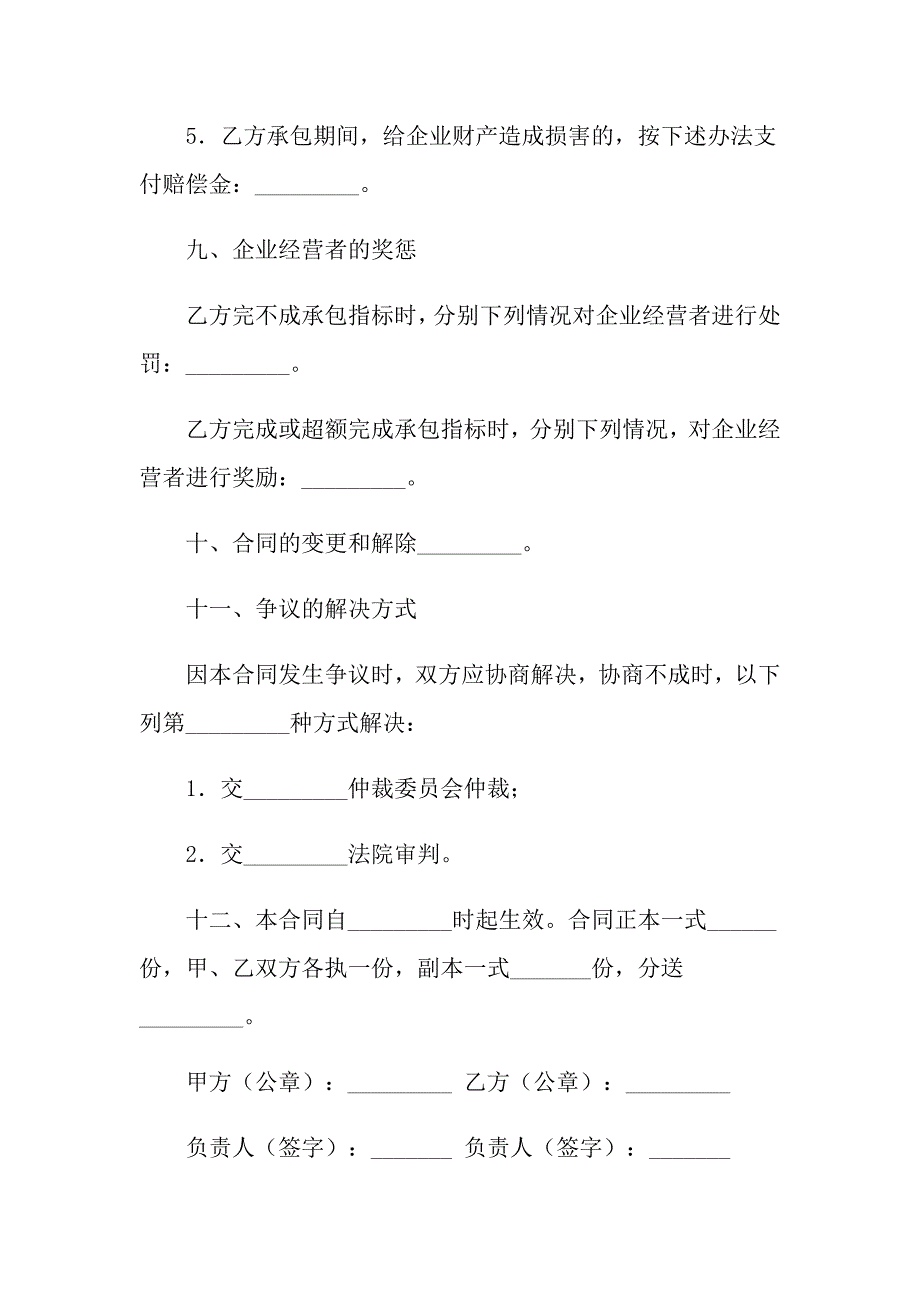 5．乙方承包期间，给企业财产造成损害的，按下述办法支
付赔偿金：_________。
九、企业经营者的奖惩
乙方完不成承包指标时，分别下列情况对企业经营者进行处
罚：_________。
乙方完成或超额完成承包指标时，分别下列情况，对企业经
营者进行奖励：_________。
十、合同的变更和解除_________。
十一、争议的解决方式
因本合同发生争议时，双方应协商解决，协商不成时，以下
列第_________种方式解决：
1．交_________仲裁委员会仲裁；
2．交_________法院审判。
十二、本合同自_________时起生效。合同正本一式______
份，甲、乙双方各执一份，副本一式_______份，分送
_________。
甲方（公章）：_________ 乙方（公章）：_________
负责人（签字）：_______ 负责人（签字）：_______